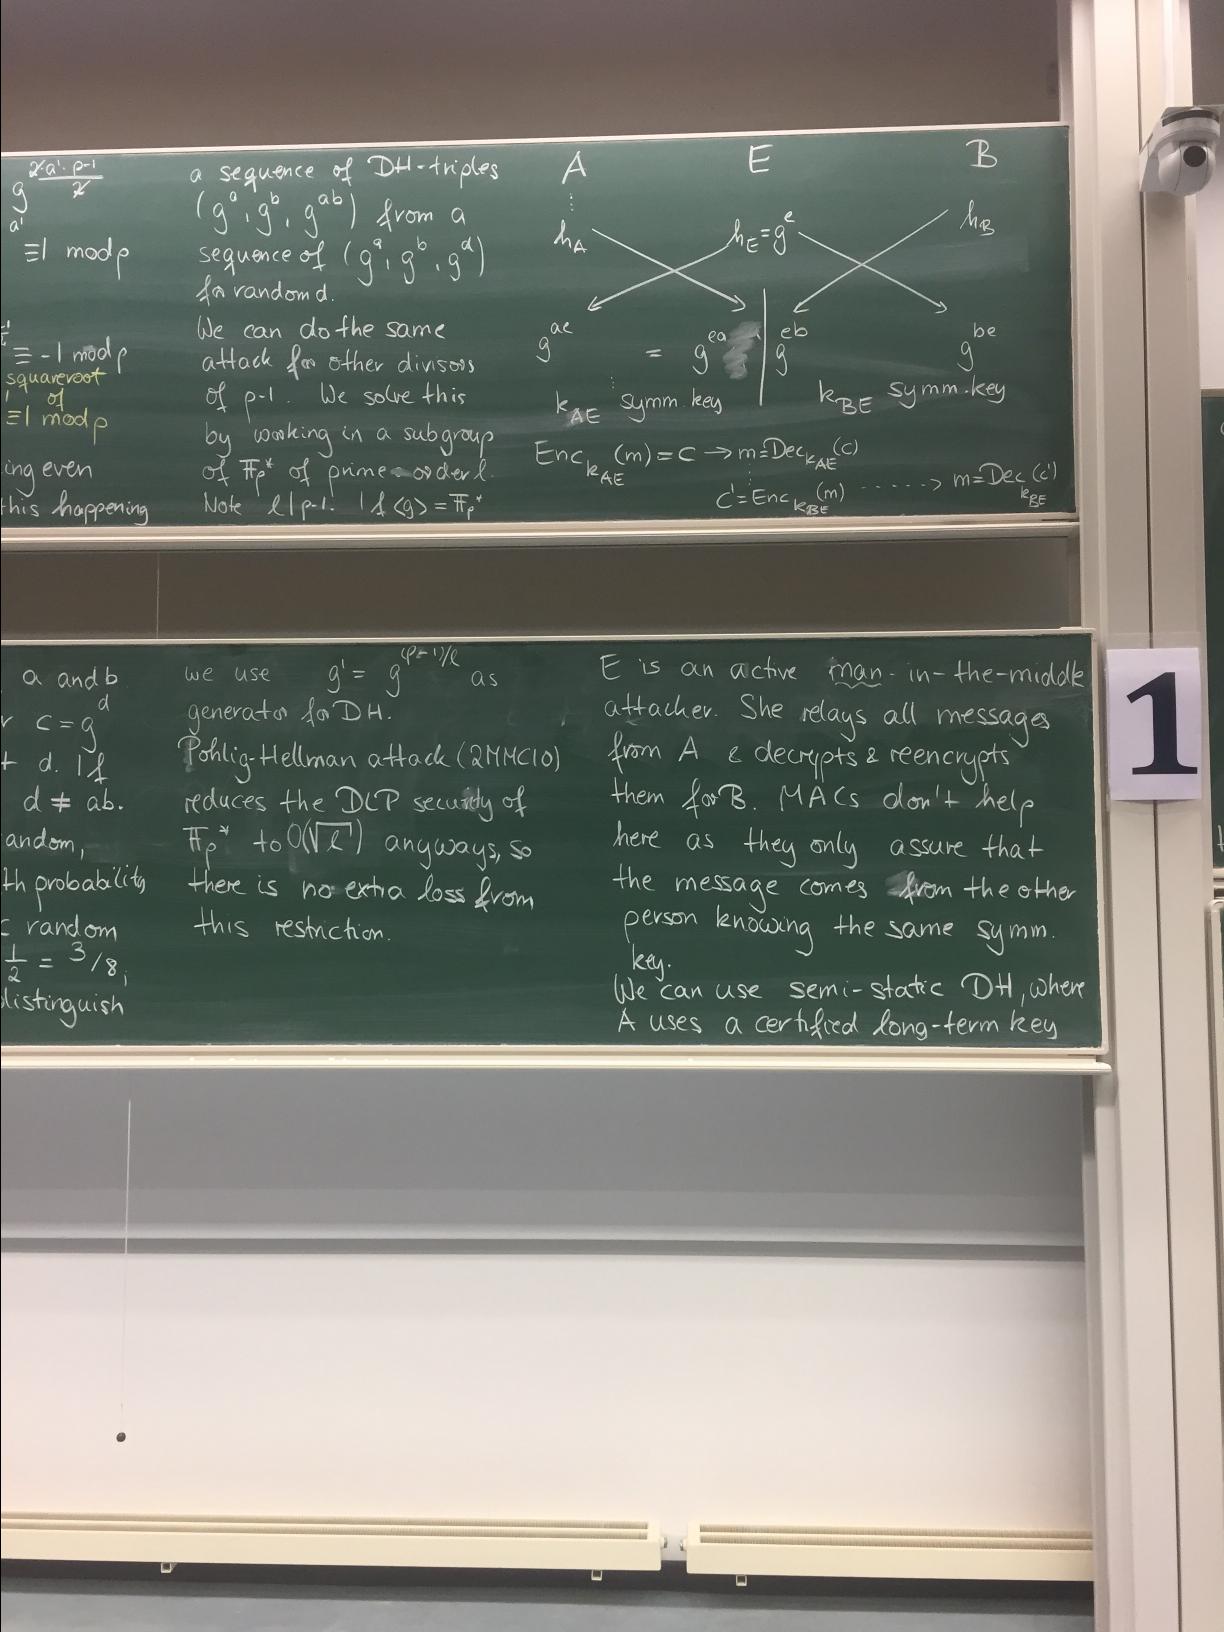 g^{2·a'·p-1 / 2}
a'
≡1 mod p
≡ -1 mod p
squareroot
of
≡1 mod p
ing even
this happening
a sequence of DH-triples
(g^a, g^b, g^{ab}) from a
sequence of (g^a, g^b, g^d)
for random d.
We can do the same
attack for other divisors
of p-1. We solve this
by working in a subgroup
of 𝔽p* of prime order l.
Note l | p-1. If <g> = 𝔽p*
A E B
h_A h_E = g^e h_B
g^{ae} = g^{ea} g^{eb} g^{be}
k_{AE} symm. key k_{BE} symm. key
Enc_{k_{AE}}(m) = c → m = Dec_{k_{AE}}(c)
c' = Enc_{k_{BE}}(m) ......> m = Dec_{k_{BE}}(c')
a and b
c = g^d
d. If
d ≠ ab.
andom,
th probability
random
1/2 = 3/8,
distinguish
we use g' = g^{(p-1)/l} as
generator for DH.
Pohlig-Hellman attack (2MMC10)
reduces the DLP security of
𝔽p* to O(√l) anyways, so
there is no extra loss from
this restriction.
E is an active man-in-the-middle
attacker. She relays all messages
from A & decrypts & reencrypts
them for B. MACs don't help
here as they only assure that
the message comes from the other
person knowing the same symm.
key.
We can use semi-static DH, where
A uses a certified long-term key
1